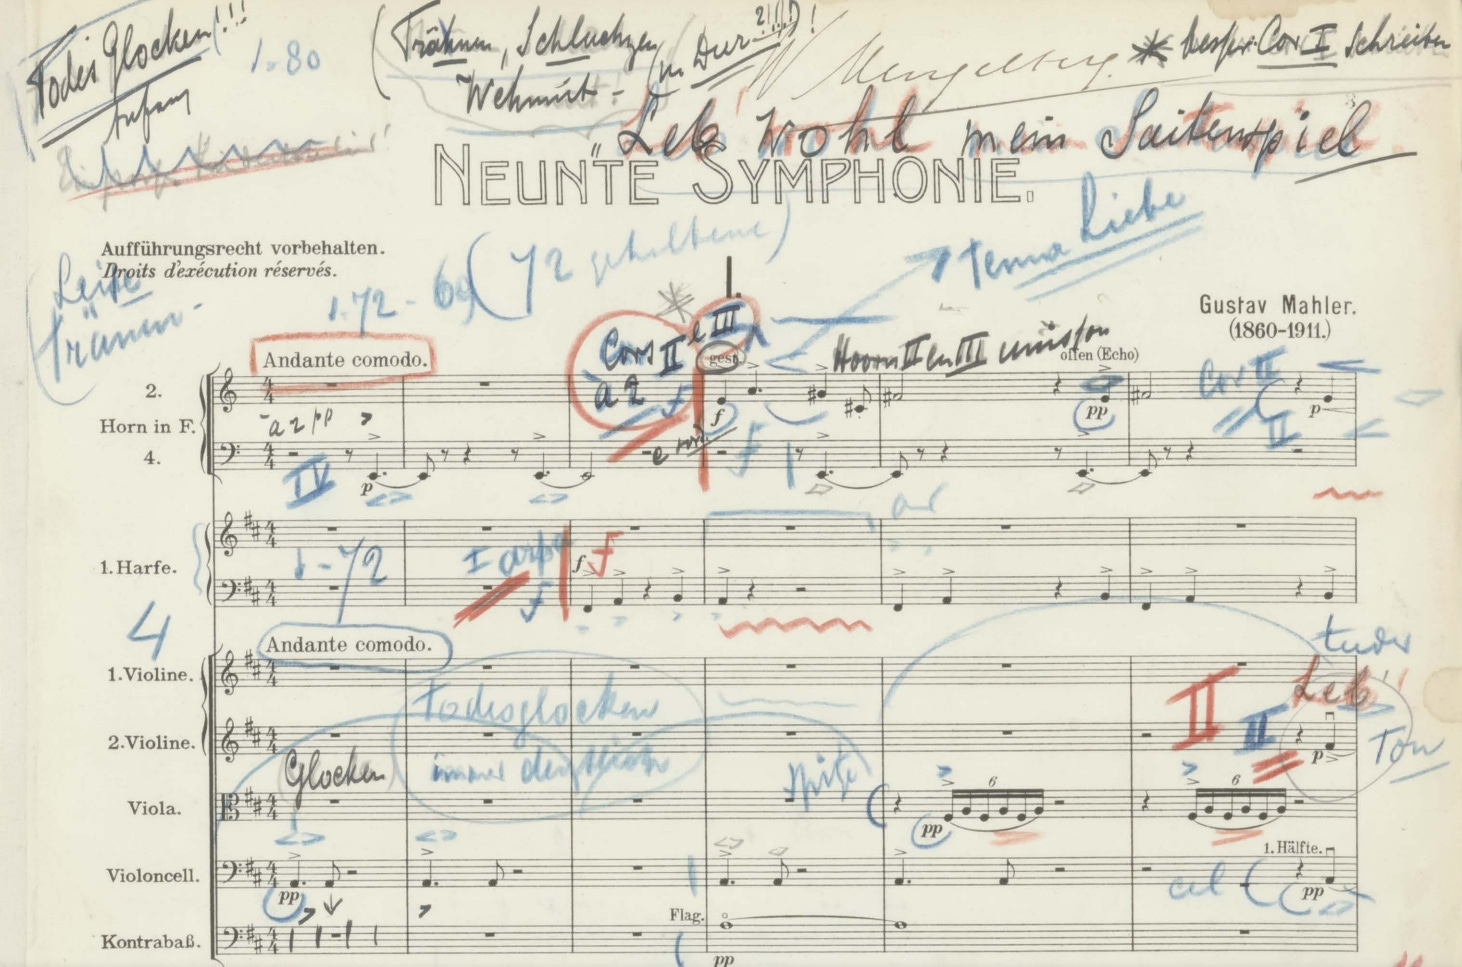 Todes Glocken!!!
Anfang
1.80
(Trähnen, Schluchzen
Wehmut - in Dur-2!!!)!
W Mengelberg.
* besser Cor I schreiben
Leb wohl mein Saitenspiel
NEUNTE SYMPHONIE.
Aufführungsrecht vorbehalten.
Droits d'exécution réservés.
72 - 69 (72 gehaltene)
Liebe
I.
Gustav Mahler.
(1860-1911.)
Andante comodo.
Cors II e III
a 2 f
gest.
Hoorn II en III unisson
offen (Echo)
Cor II
2.
Horn in F.
4.
a 2 pp
IV
p
f
f
pp
p
II
1. Harfe.
72
I arpa
f
f
f
4
Andante comodo.
1. Violine.
2. Violine.
Viola.
Violoncell.
Kontrabaß.
Todesglocken
immer
Glocken
Spitze
II
II
Leb'!
p
Ton
6
6
pp
1. Hälfte.
pp
cel
pp
Flag.
pp